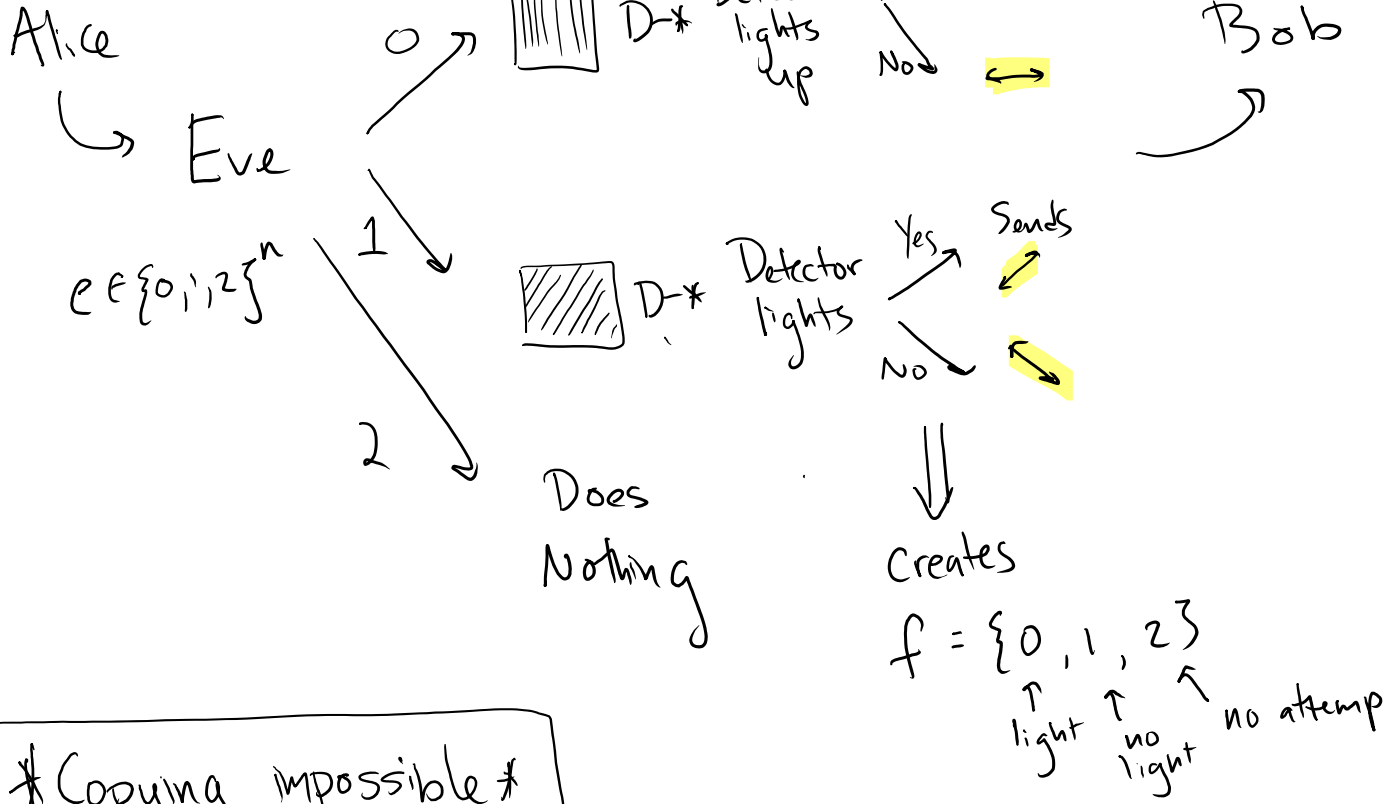 Alice
0
D-*
lights
up
No
Bob
Eve
e ∈ {0,1,2}^n
1
D-*
Detector
lights
Yes
No
Sends
2
Does
Nothing
Creates
f = {0, 1, 2}
light
no
light
no attemp
*Copying impossible*